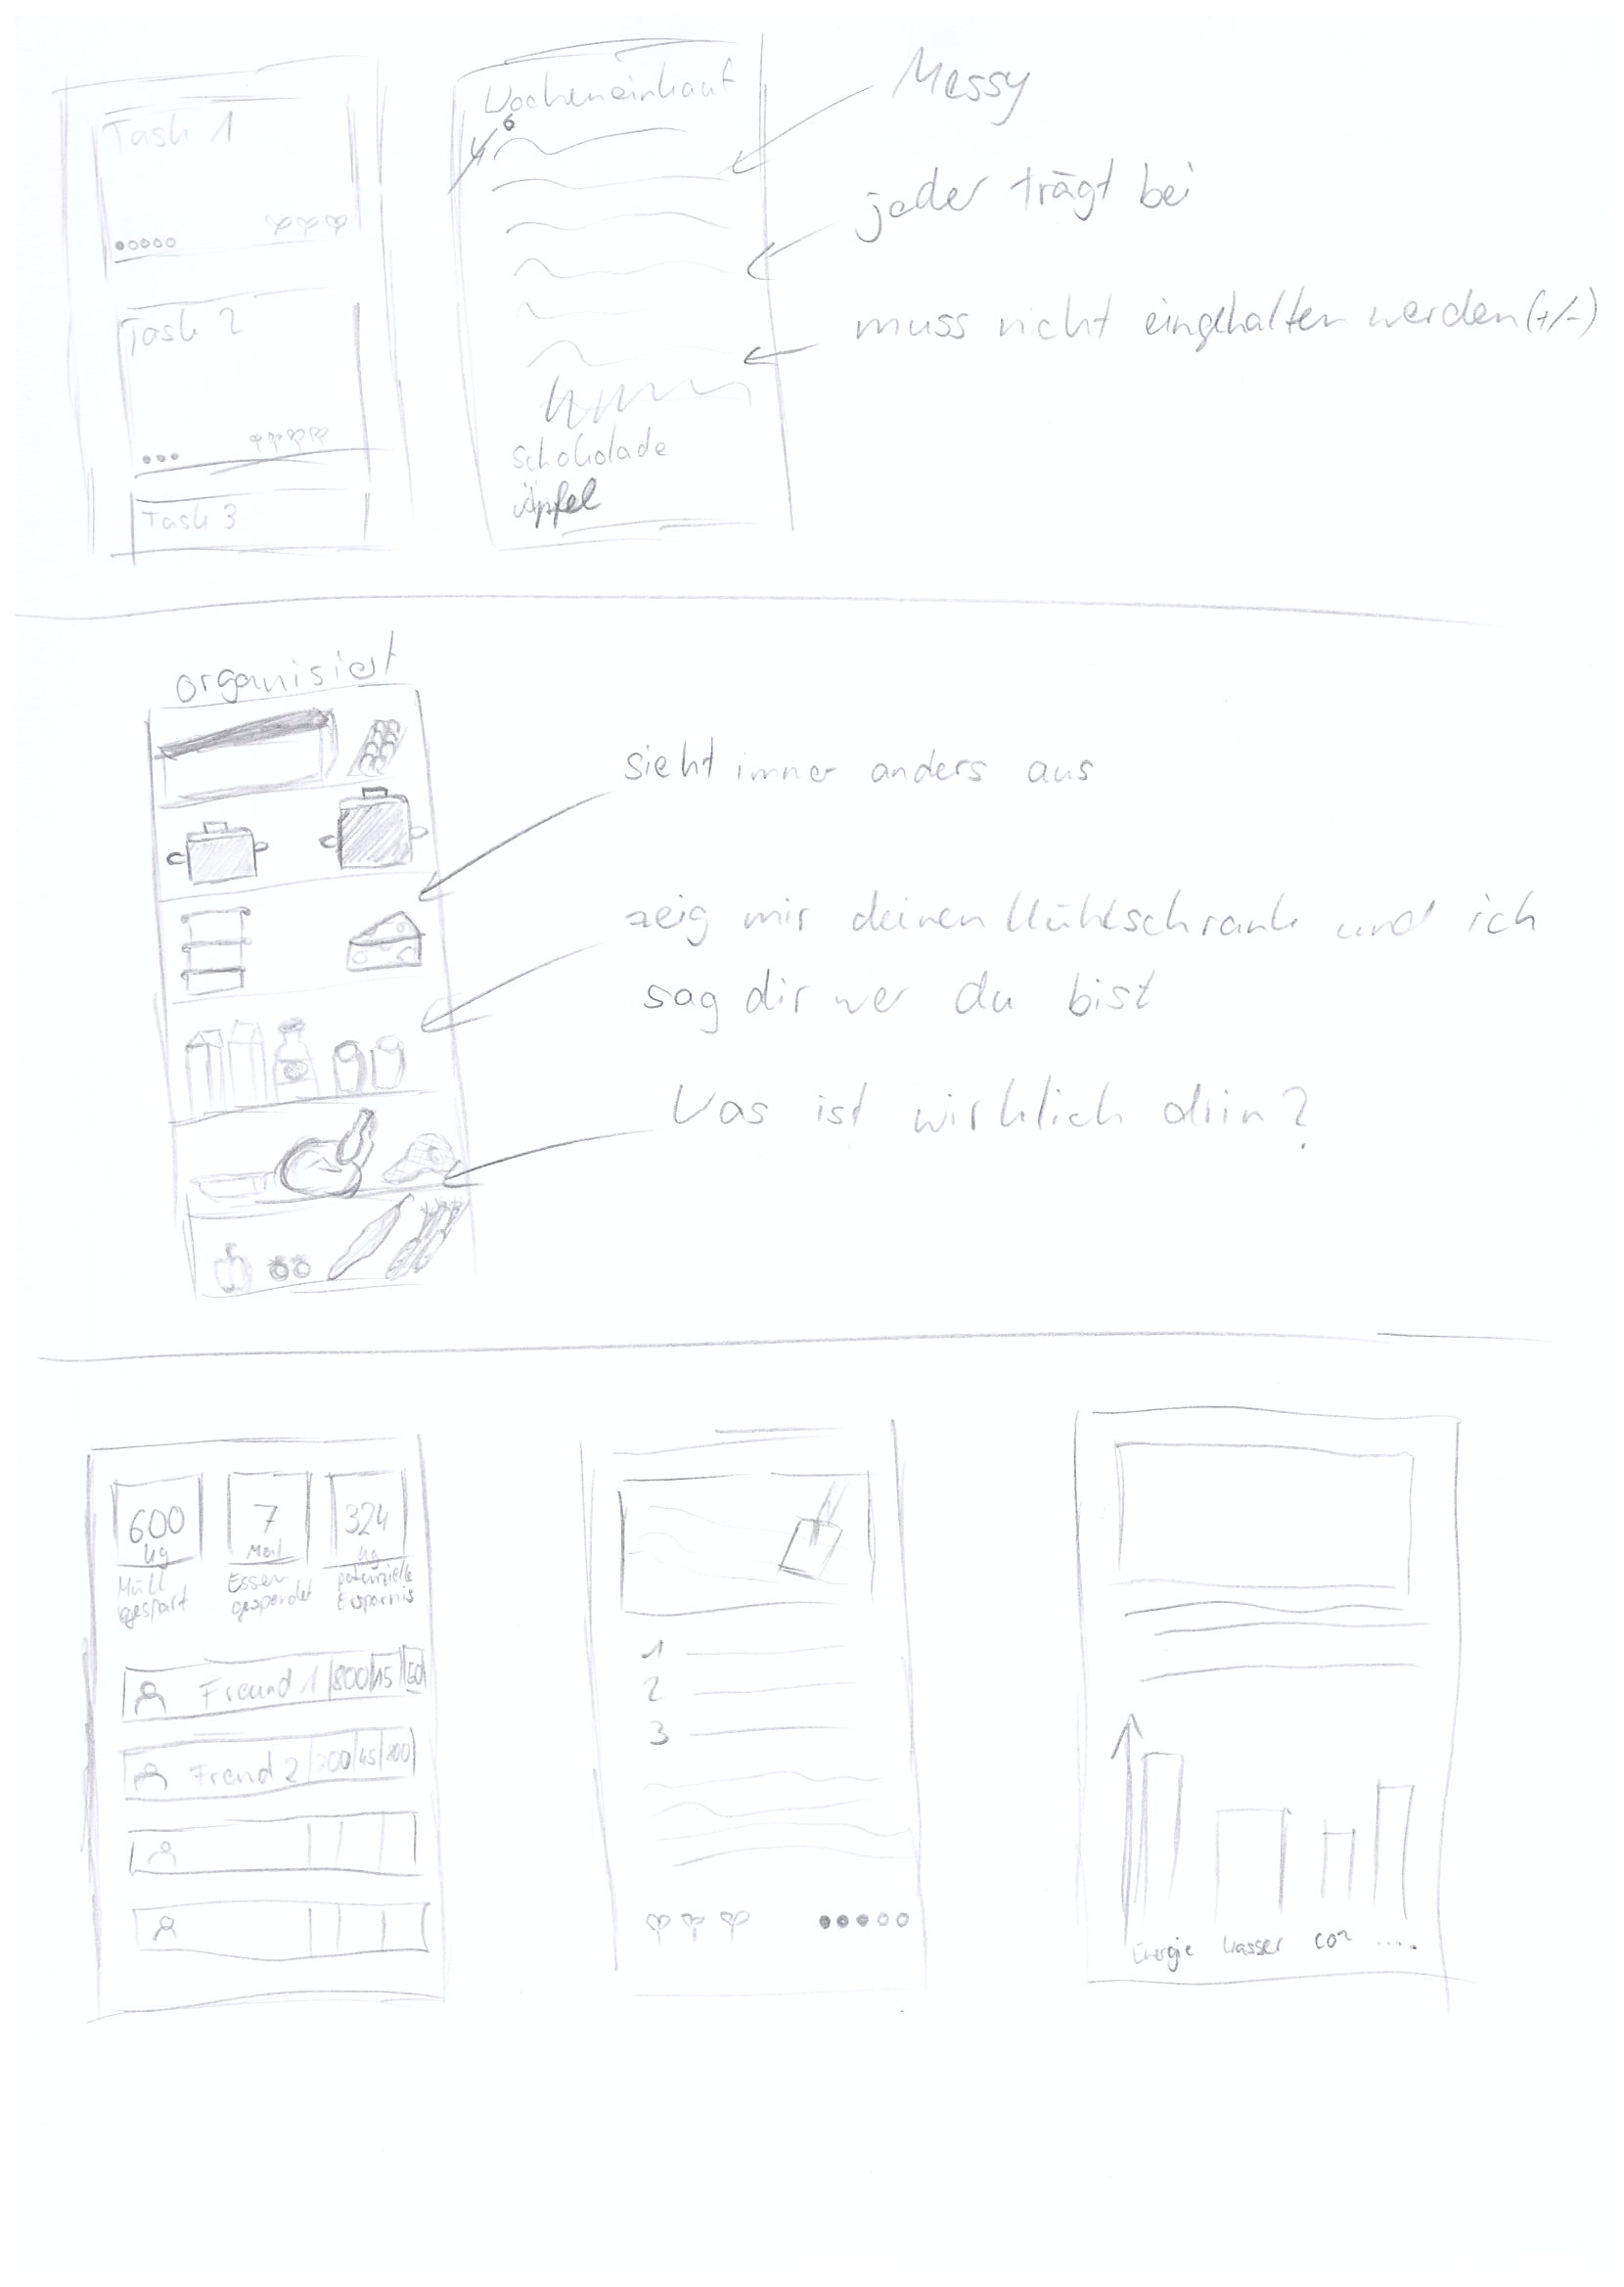 Task 1
Task 2
Task 3
Wocheneinkauf
4 6
Schokolade
Äpfel
Messy
jeder trägt bei
muss nicht eingehalten werden (+/-)
organisiert
sieht immer anders aus
zeig mir deinen Kühlschrank und ich
sag dir wer du bist
Was ist wirklich drin?
600 kg
Müll
gespart
7 Mal
Essen
gespendet
324 kg
potenzielle
Ersparnis
Freund 1 800 15
Freund 2 200 45 800
1
2
3
Energie Wasser CO2 .....